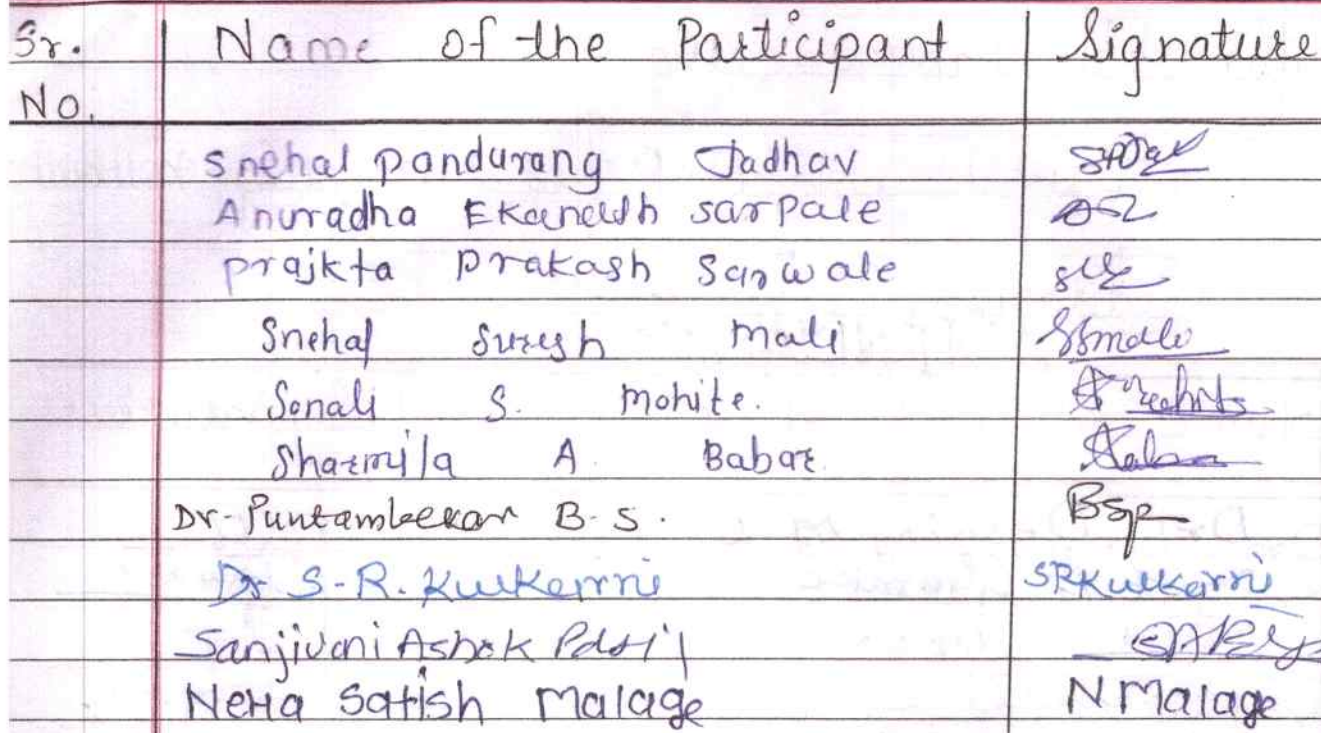 Sr. Name of the Participant Signature
No.
Snehal pandurang Jadhav
Anuradha Ekanath sarpale
prajkta prakash Sarwale
Snehal Suresh Mali SSmali
Sonali S. Mohite. Mohite
Sharmila A. Babar
Dr. Puntambekar B. S. BSP
Dr S. R. Kulkarni SRKulkarni
Sanjivani Ashok Patil
NeHa Satish Malage N Malage